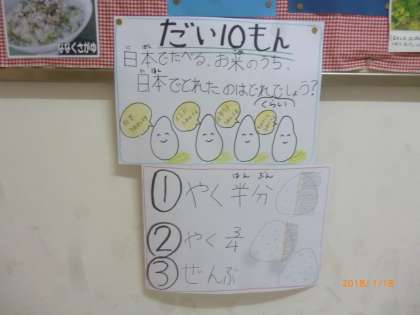 ななくさがゆ
だい10もん
にほん
日本でたべる、お米のうち、
にほん
日本でとれたのはどれ(くらい)でしょう?
はんぶん
①やく半分
②やく3/4
③ぜんぶ
2018/1/18